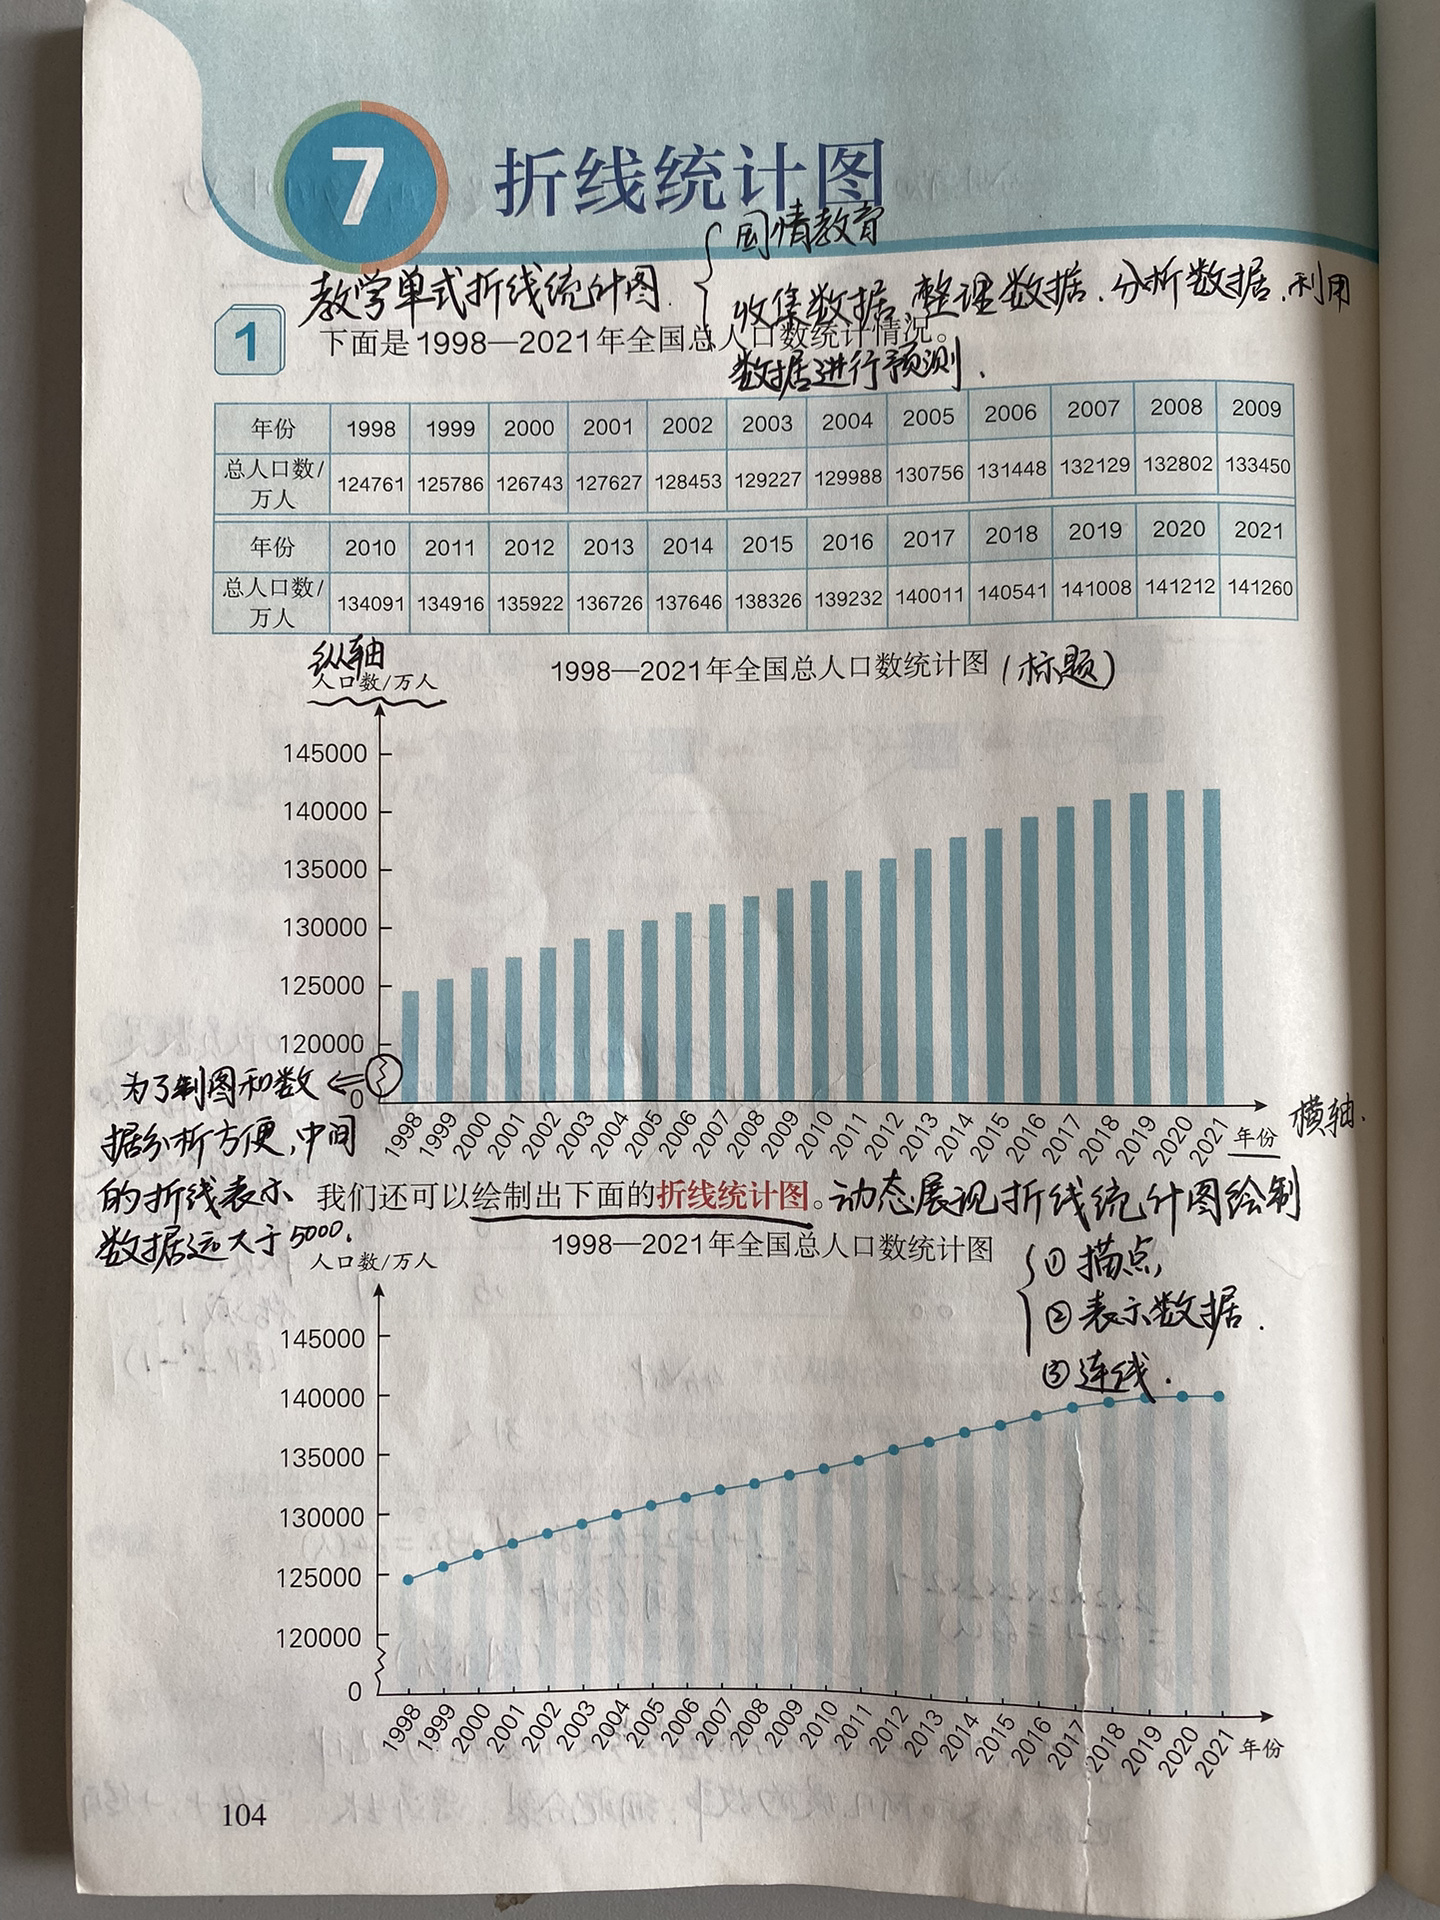 7
折线统计图
国情教育
教学单式折线统计图.
收集数据、整理数据、分析数据、利用
数据进行预测.
1
下面是1998—2021年全国总人口数统计情况。
年份 1998 1999 2000 2001 2002 2003 2004 2005 2006 2007 2008 2009
总人口数/万人 124761 125786 126743 127627 128453 129227 129988 130756 131448 132129 132802 133450
年份 2010 2011 2012 2013 2014 2015 2016 2017 2018 2019 2020 2021
总人口数/万人 134091 134916 135922 136726 137646 138326 139232 140011 140541 141008 141212 141260
纵轴
人口数/万人
1998—2021年全国总人口数统计图(标题)
145000
140000
135000
130000
125000
120000
0
1998 1999 2000 2001 2002 2003 2004 2005 2006 2007 2008 2009 2010 2011 2012 2013 2014 2015 2016 2017 2018 2019 2020 2021 年份
横轴.
为了制图和数
据分析方便,中间
的折线表示
数据远大于5000.
我们还可以绘制出下面的折线统计图。
动态展现折线统计图绘制
①描点,
②表示数据.
③连线.
1998—2021年全国总人口数统计图
人口数/万人
145000
140000
135000
130000
125000
120000
0
1998 1999 2000 2001 2002 2003 2004 2005 2006 2007 2008 2009 2010 2011 2012 2013 2014 2015 2016 2017 2018 2019 2020 2021 年份
104